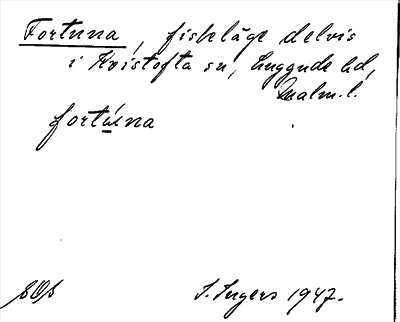 Fortuna, fiskeläge delvis
i Kvistofta sn, Luggude hd,
Malm. l.
fortúna
SOS
I. Ingers 1947.